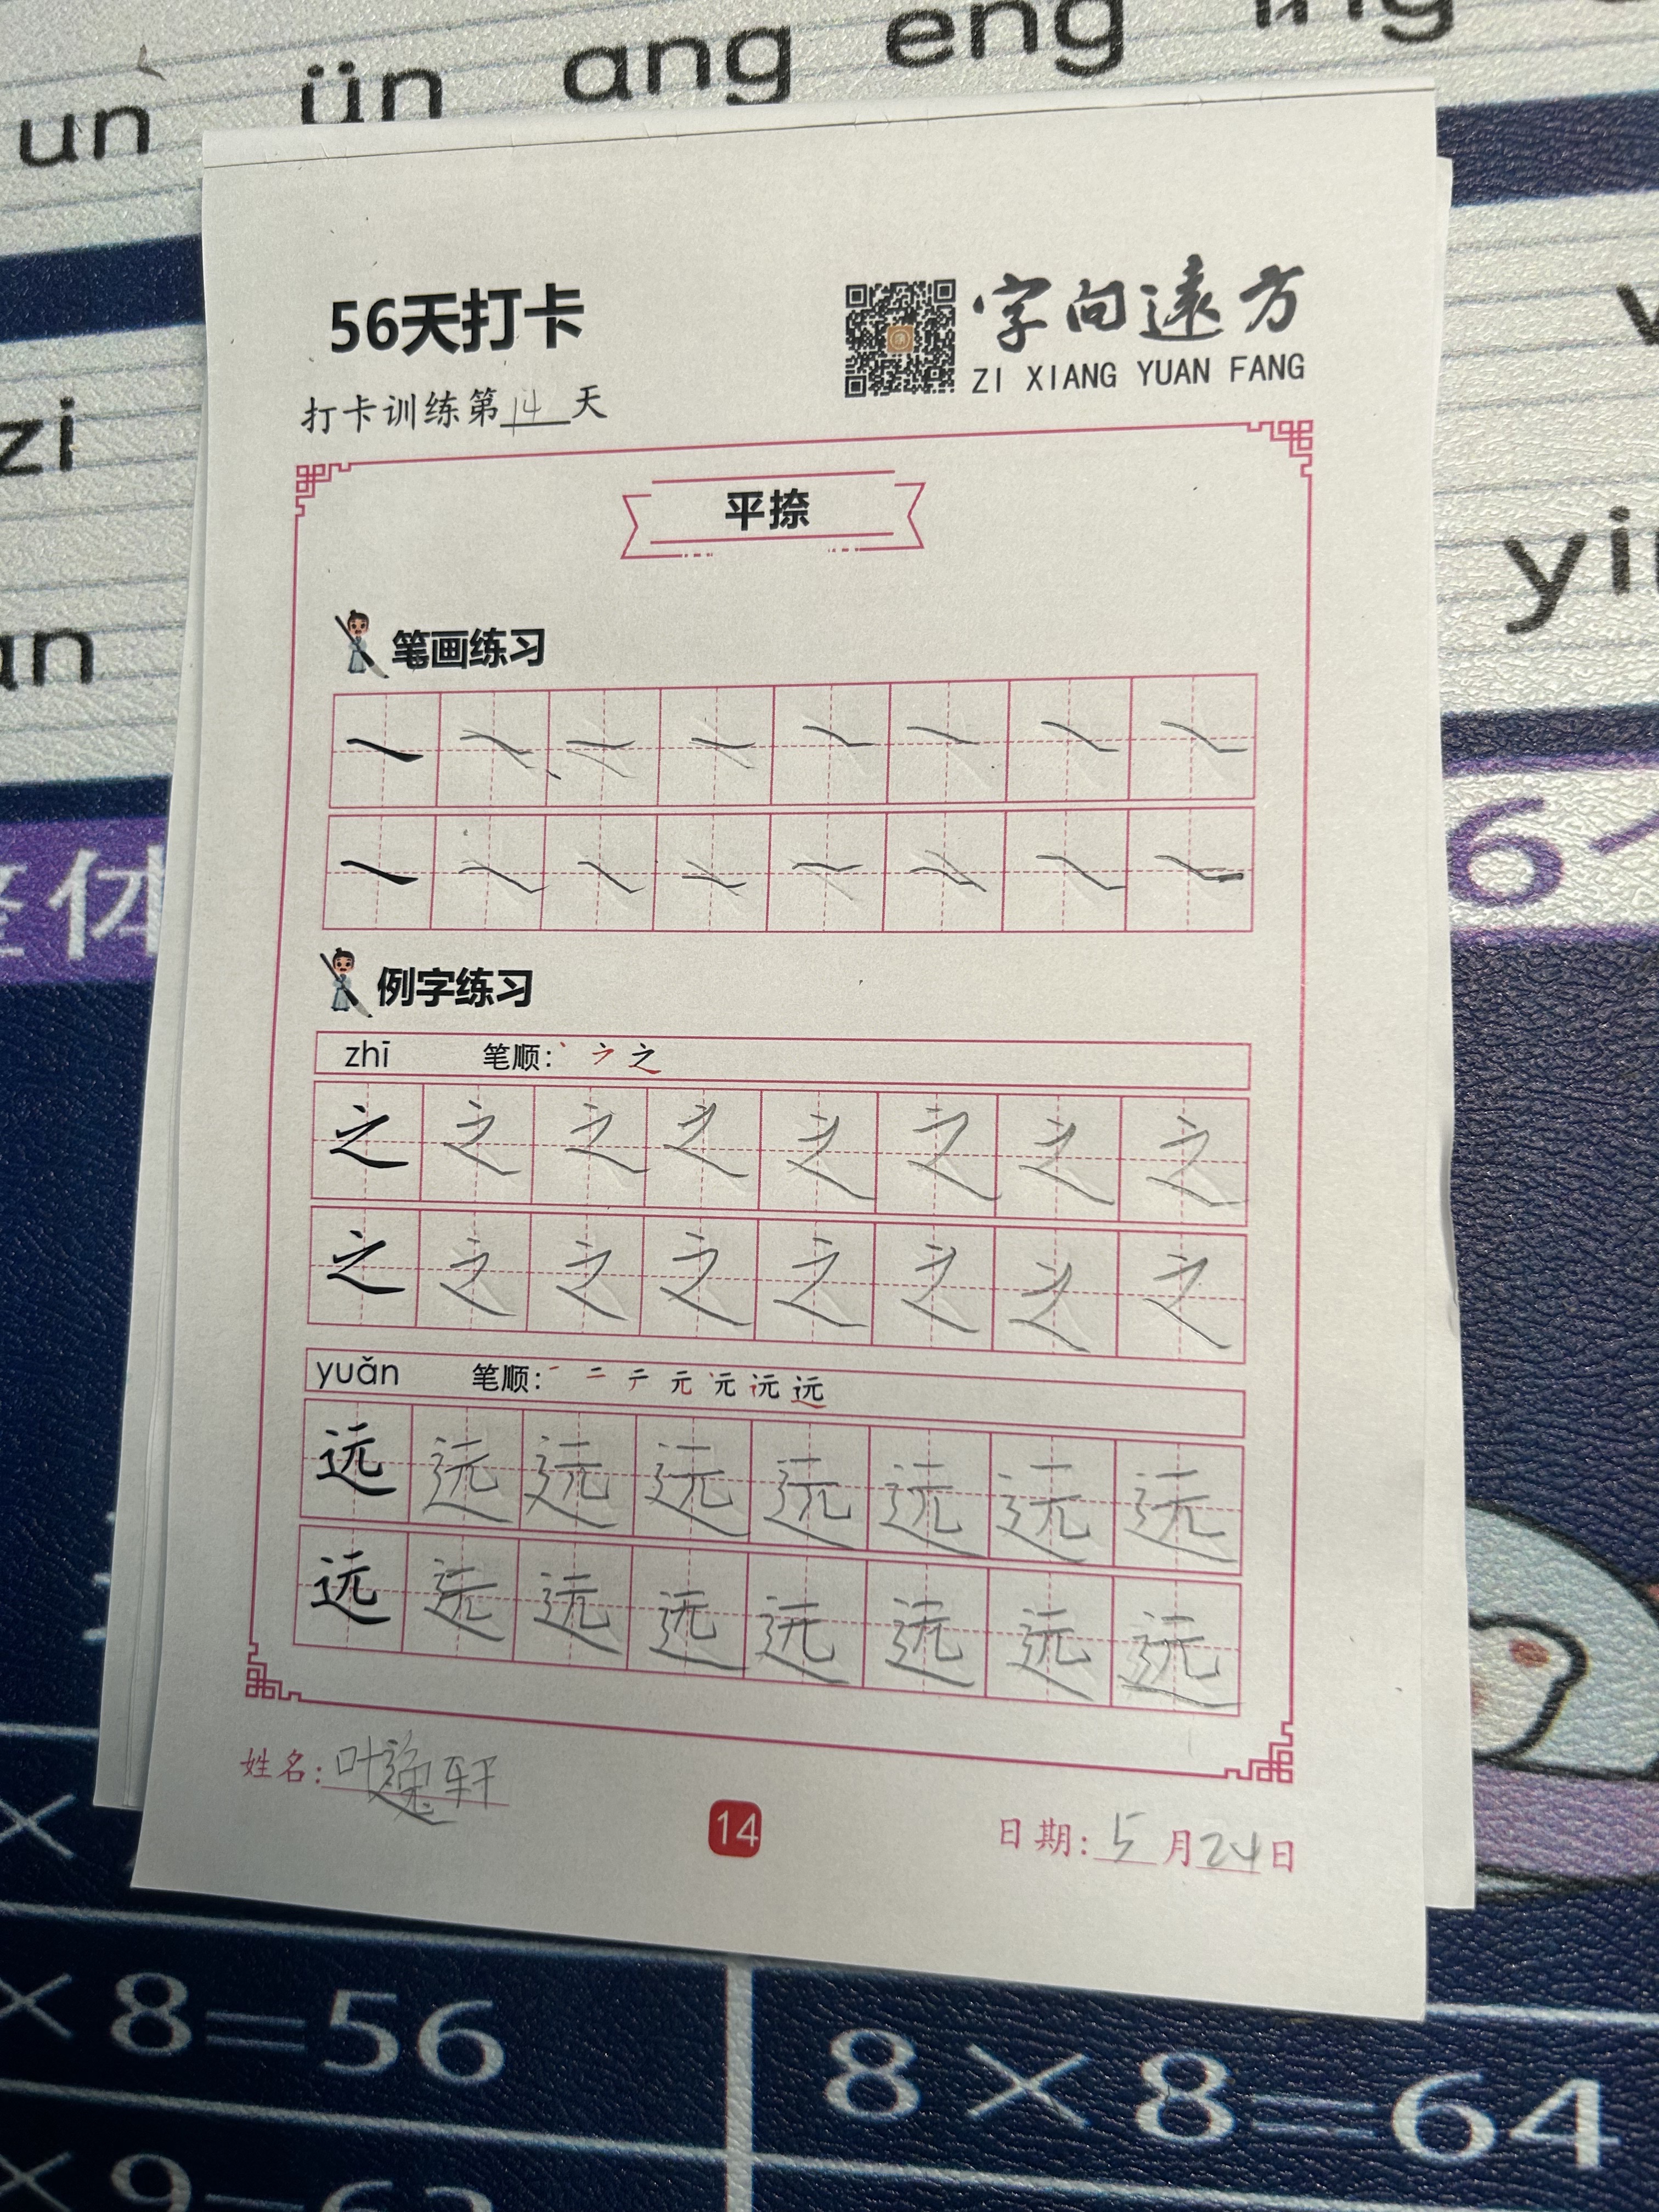 un ün ang eng ing
zi
yi
an
整体
6个
56天打卡
字向遠方
ZI XIANG YUAN FANG
打卡训练第14天
平捺
笔画练习
例字练习
zhī 笔顺: 丶 之
之 之 之 之 之 之 之 之
之 之 之 之 之 之 之 之
yuǎn 笔顺: 一 二 テ 元 远
远 远 远 远 远 远 远 远
远 远 远 远 远 远 远 远
姓名: 叶逸轩
14
日期: 5月24日
× 8=56
8×8=64
×9=63